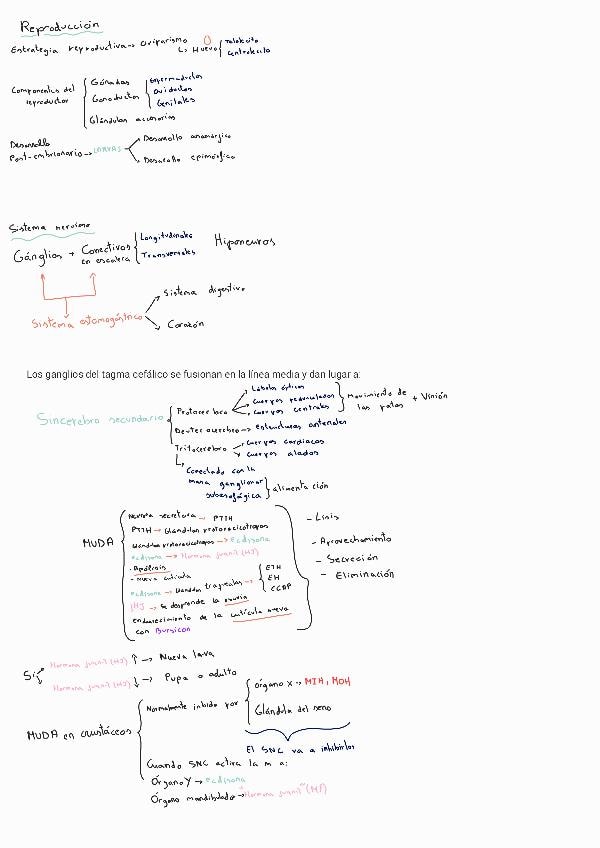 Reproducción
Estrategia reproductiva → Oviparismo
↳ Huevo
Telolecito
Centrolecito
Componentes del reproductor
Gónadas
Gonoductos
Espermiductos
Oviductos
Genitales
Glándulas accesorias
Desarrollo
Post-embrionario → LARVAS
Desarrollo anamórfico
Desarrollo epimórfico
Sistema nervioso
Gánglios + Conectivos
en escalera
Longitudinales
Transversales
Hiponeuros
Sistema estomogástrico
Sistema digestivo
Corazón
Los ganglios del tagma cefálico se fusionan en la línea media y dan lugar a:
Sincerebro secundario
Protocerebro
Lóbulos ópticos
Cuerpos pedunculados
Cuerpos centrales
Movimiento de
las patas + Visión
Deutocerebro → estructuras antenales
Tritocerebro
Cuerpos cardiacos
Cuerpos alados
Conectado con la
masa ganglionar
subesofágica
alimentación
MUDA
Neurona secretora → PTTH
PTTH → Glándulas protoracicotropas
Glándulas protoracicotropas → ecdisona
ecdisona → Hormona juvenil (HJ)
- Apólisis
- Nueva cutícula
ecdisona → Glándulas traqueales →
ETH
EH
CCAP
(HJ → Se desprende la exuvia
endurecimiento de la cutícula nueva
con Bursicon
- Lisis
- Aprovechamiento
- Secreción
- Eliminación
Si
Hormona juvenil (HJ) ↑ → Nueva larva
Hormona juvenil (HJ) ↓ → Pupa o adulto
MUDA en crustáceos
Normalmente inhibido por
órgano X → MIH, MOH
Glándula del seno
El SNC va a inhibirlos
Cuando SNC activa la m a:
Órgano Y → ecdisona
Órgano mandibulador → "Hormona juvenil" (MF)